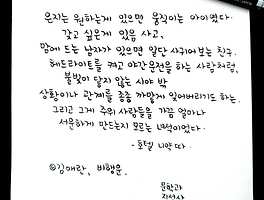 은지는 원하는게 있으면 움직이는 아이였다.
갖고 싶은게 있음 사고,
맘에 드는 남자가 있으면 일단 사귀어보는 친구.
헤드라이트를 켜고 야간운전을 하는 사람처럼,
불빛이 닿지 않는 시야 밖
상황이나 관계를 종종 까맣게 잊어버리기도 하는.
그리고 그게 주위 사람들을 가끔 얼마나
서운하게 만드는지 모르는 녀석이었다.
- 호텔 니약 따 -
©김애란, 비행운.
문학과
지성사